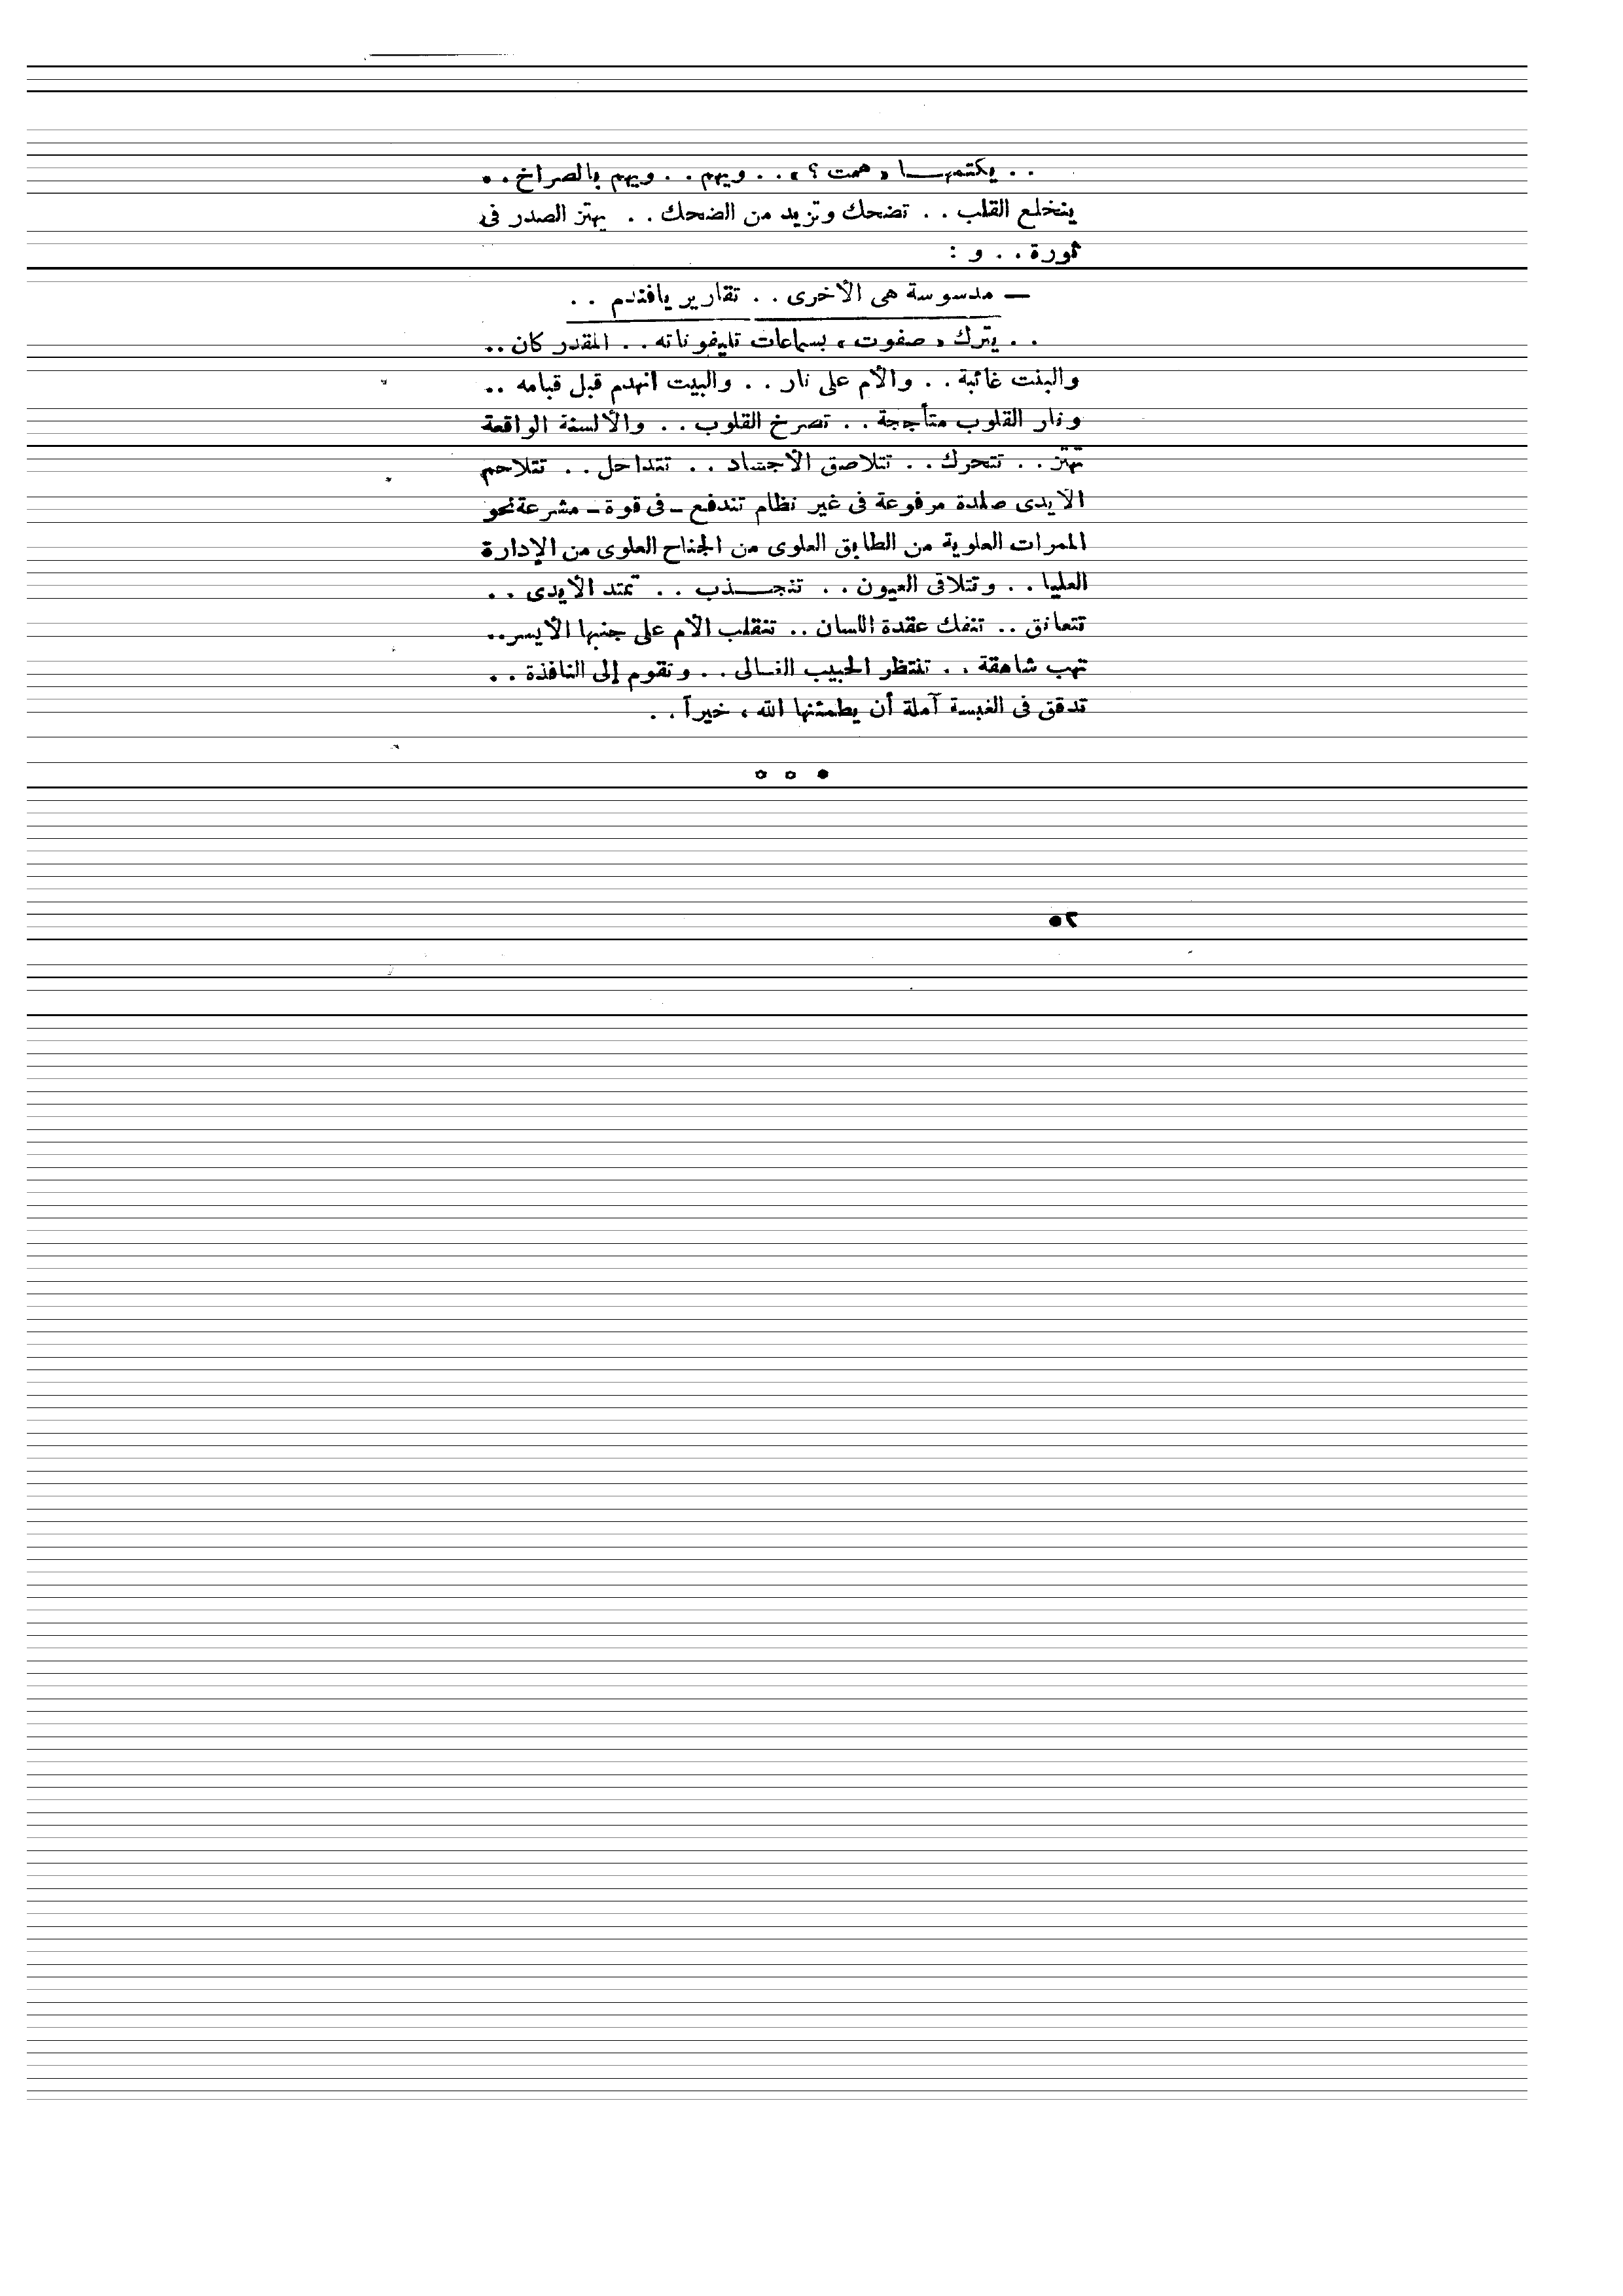 . . يكتمهـــا « همت ؟ » . . ويهم . . ويهم بالصراخ . .
ينخلع القلب . . تضحك وتزيد من الضحك . . يهتز الصدر فى
ثورة . . و :
— مدسوسة هى الأخرى . . تقارير يافندم . .
. . يترك « صفوت » بسماعات تليفوناته . . المقدر كان ..
والبنت غائبة . . والأم على نار . . والبيت انهدم قبل قيامه ..
ونار القلوب متأججة . . تصرخ القلوب . . والألسنة الواقعة
تهتز . . تتحرك . . تتلاصق الأجساد . . تتداخل . . تتلاحم
الأيدى صلدة مرفوعة فى غير نظام تندفع ـ فى قوة ـ مشرعة نحو
الممرات العلوية من الطابق العلوى من الجناح العلوى من الإدارة
العليا . . وتتلاقى العيون . . تنجـــذب . . تمتد الأيدى . .
تتعانق .. تنفك عقدة اللسان .. تنقلب الأم على جنبها الأيسر ..
تهب شاهقة . . تنتظر الحبيب الغالى . . وتقوم إلى النافذة . .
تدقق فى الغبسة آملة أن يطمئنها الله ، خيراً . .
٥٢